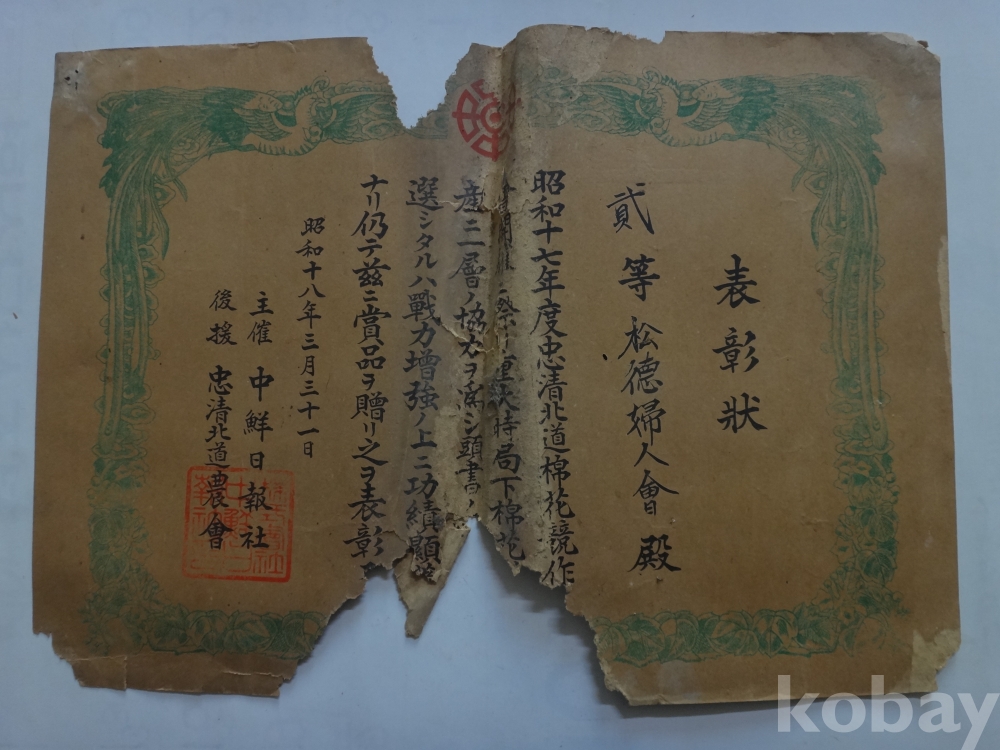 表彰狀
貳等 松德婦人會 殿
昭和十七年度忠清北道棉花競作
重 時局下棉花
産三層ノ協力ヲ 頭書ノ
選シタルハ戰力增強ノ上ニ功績顯
ナリ仍テ茲ニ賞品ヲ贈リ之ヲ表彰
昭和十八年三月三十一日
主催 中鮮日報社
後援 忠清北道農會
kobay